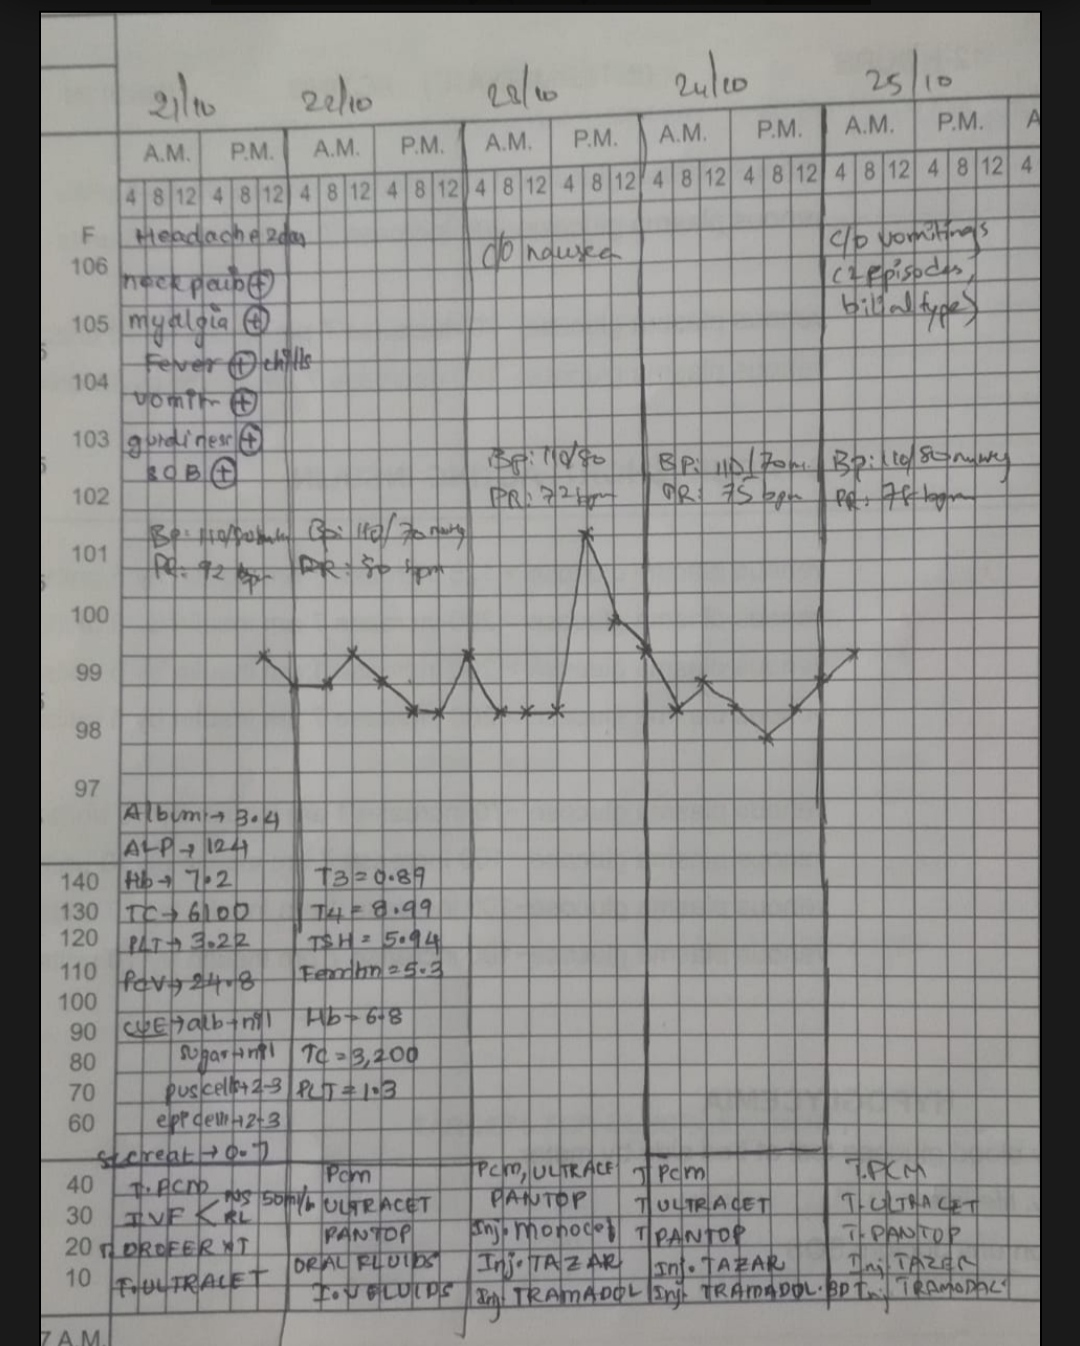 21/10 22/10 23/10 24/10 25/10
A.M. P.M. A.M. P.M. A.M. P.M. A.M. P.M. A.M. P.M. A
4 8 12 4 8 12 4 8 12 4 8 12 4 8 12 4 8 12 4 8 12 4 8 12 4 8 12 4 8 12 4
F
106
105
104
103
102
101
100
99
98
97
140
130
120
110
100
90
80
70
60
40
30
20
10
7 A.M.
Headache 2days
neck pain +
myalgia +
Fever + chills
vomit +
+
SOB +
BP: 110/80
PR: 92 bpm
Album → 3.4
ALP → 124
Hb → 7.2
TC → 6100
PLT → 3.22
PCV → 24.8
CUE → alb → nil
sugar → nil
pus cells → 2-3
epi cells → 2-3
Sr creat → 0.7
T. PCM
IVF < NS 50ml/h
RL
OROFER XT
T. ULTRACET
BP: 110/70 mmHg
PR: 80 bpm
T3 = 0.89
T4 = 8.99
TSH = 5.94
= 5.3
Hb - 6.8
TC = 3,200
PLT = 1.3
PCM
ULTRACET
PANTOP
ORAL FLUIDS
I.V FLUIDS
c/o nausea
BP: 110/80
PR: 72 bpm
PCM, ULTRACE
PANTOP
Inj. Monocef
Inj. TAZAR
Inj TRAMADOL
BP: 110/70 m
PR: 75 bpm
T PCM
T ULTRACET
T PANTOP
Inj. TAZAR
Inj TRAMADOL. BD
c/o vomitings
(2 episodes,
bilial type)
BP: 110/80 mmHg
PR: 78 bpm
T. PCM
T. ULTRACET
T. PANTOP
Inj TAZER
Inj TRAMODAL